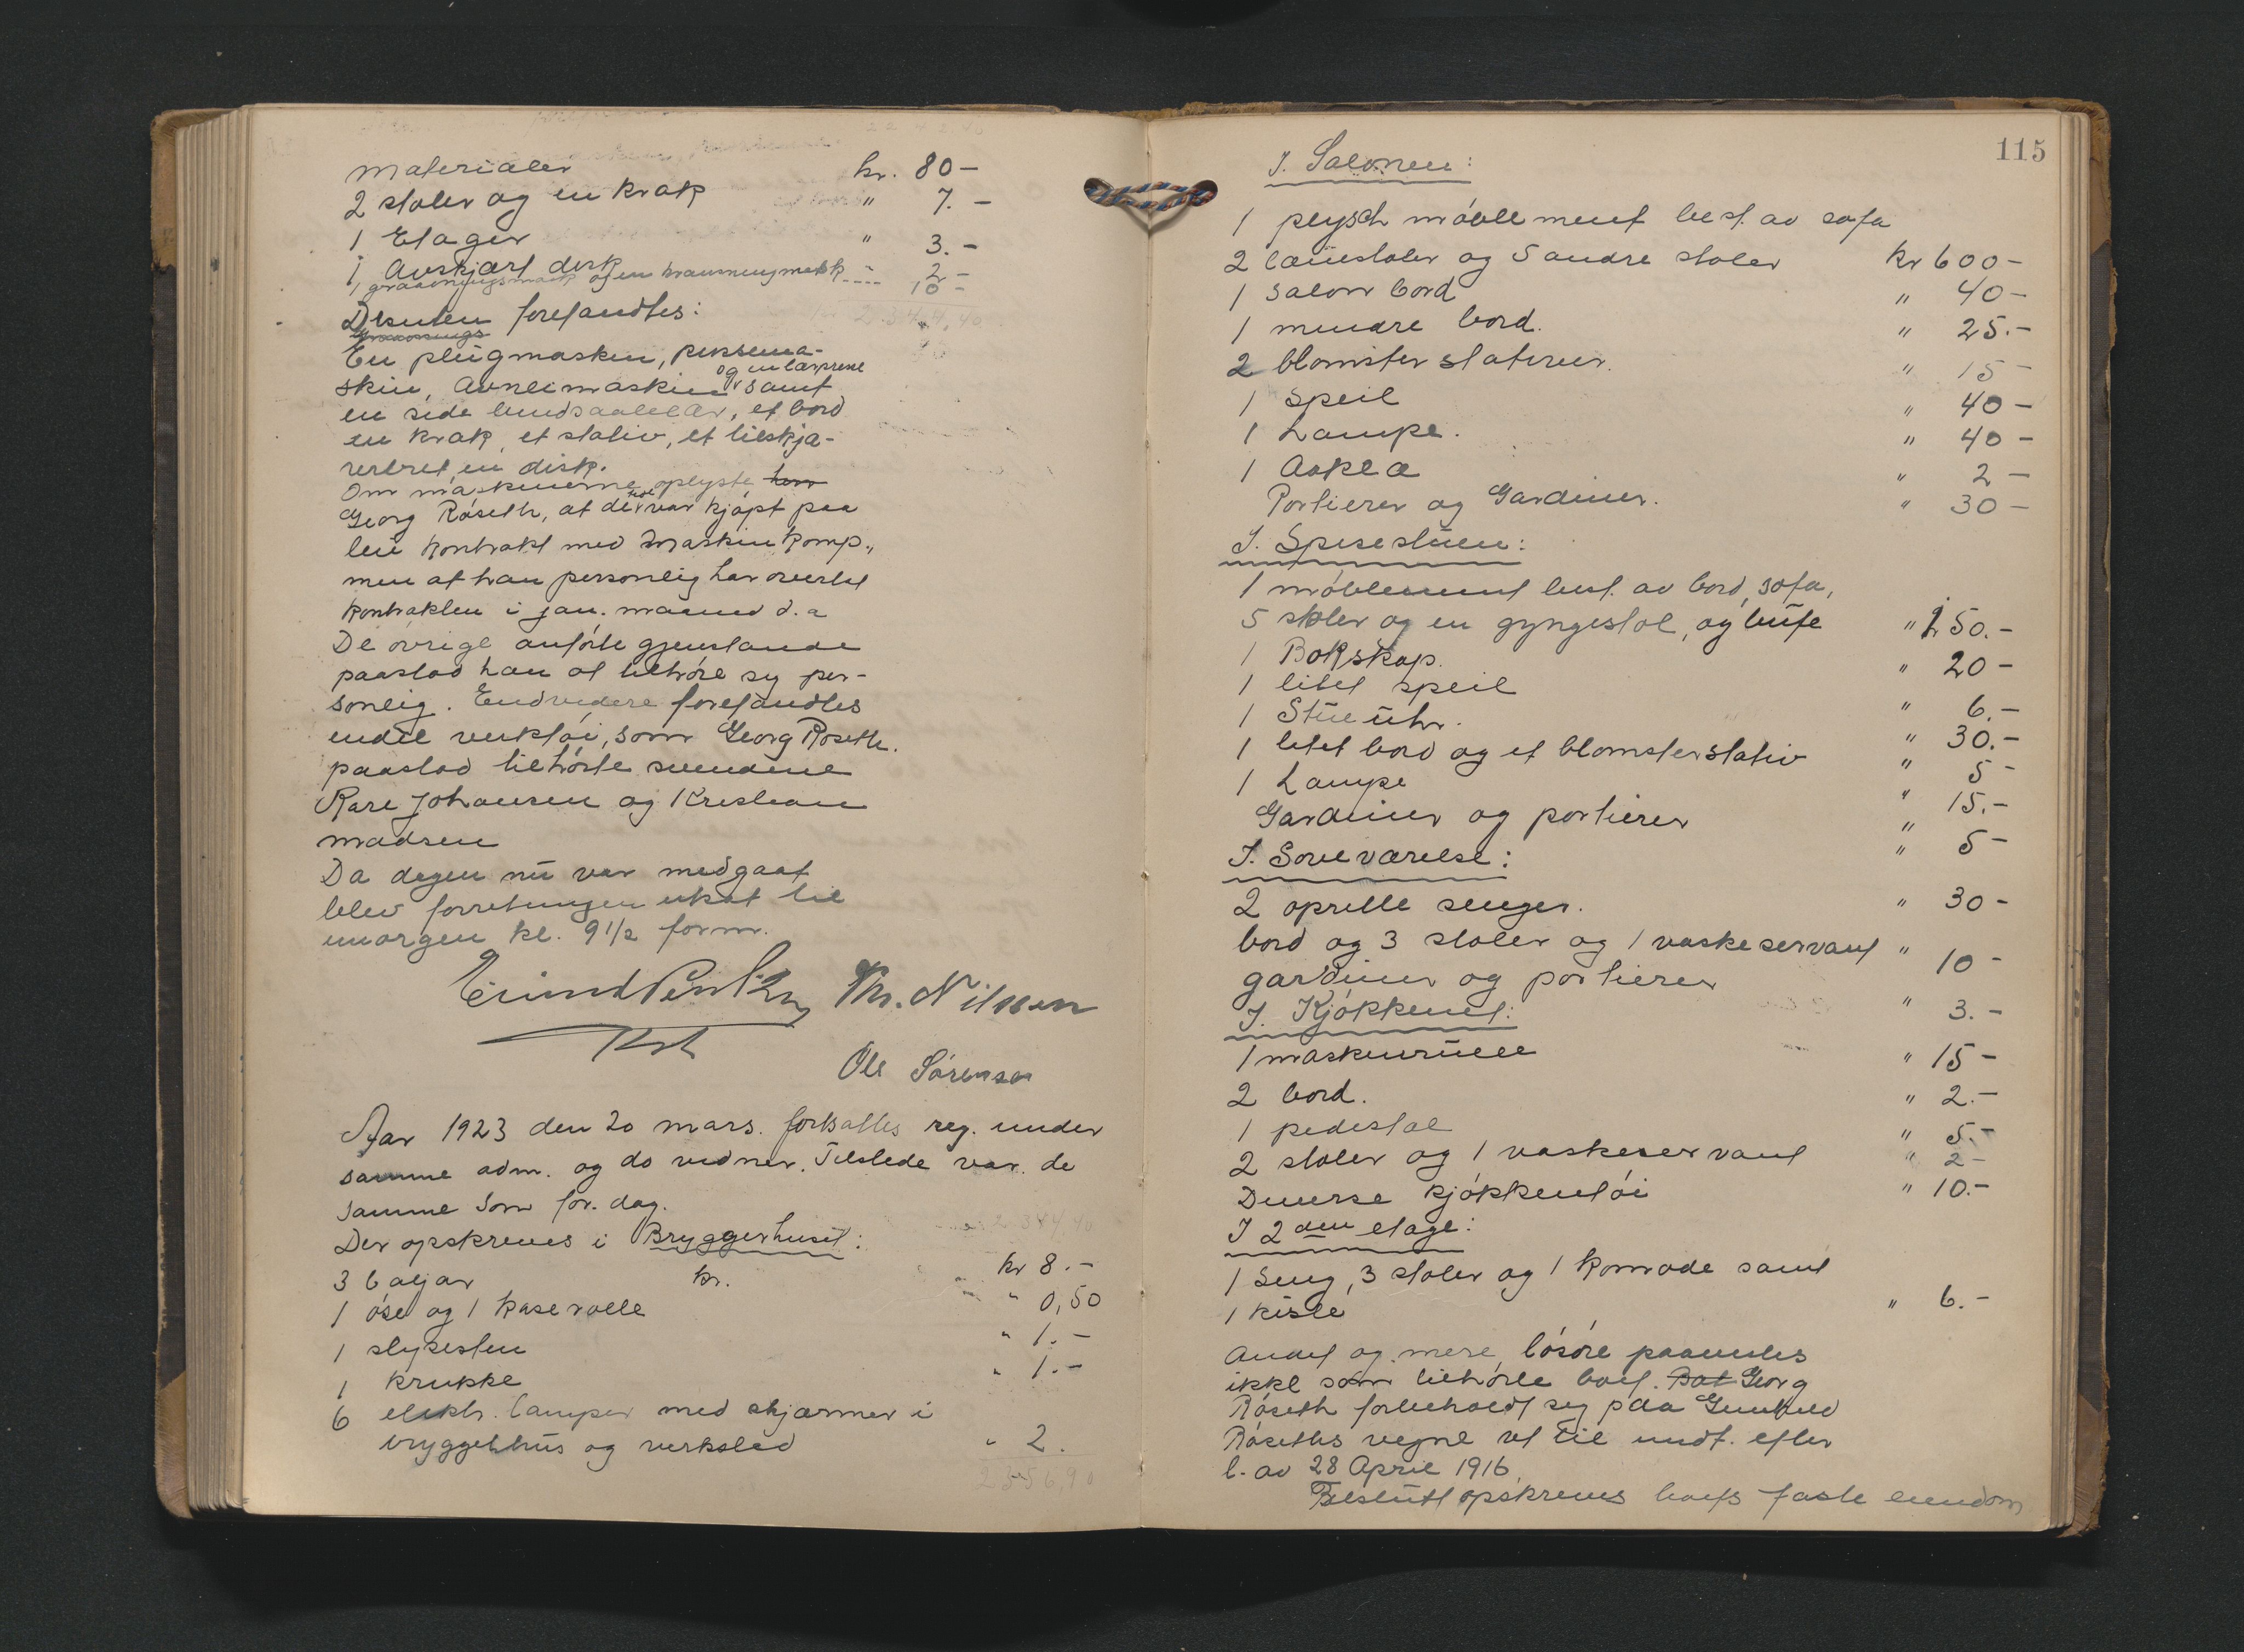 materialer kr. 80-
2 stoler og en krak " 7.-
1 Etager " 3.-
1 Avskjært disk " 2-
1 og en 10-
Desuten forefandtes:
En plugmaskin, pussema-
skin, avneimaskin og en samt
en side bundsaalelær, et bord
en krak, et stativ, et tilskjæ-
rerbret en disk.
Om maskinerne oplyste
Georg Röseth, at de var kjöpt paa
leie kontrakt med Maskin komp.,
men at han personlig har overtat
kontrakten i jan. maaned d.a
De övrige anförte gjenstande
paastod han at tilhöre sig per-
sonlig. Endvidere forefandtes
endel verktöi, som Georg Röseth.
paastod tilhörte svendene
Kare Johansen og Kristian
Madsen
Da dagen nu var medgaat
blev forretningen utsat til
imorgen kl. 9 1/2 form.
Th. Nilssen
Ole Sörensen
Aar 1923 den 20 mars. fortsattes reg. under
samme adm. og do vidner. Tilstede var de
samme som for. dag.
Der opskreves i Bryggerhuset:
3 baljar kr. kr 8.-
1 öse og 1 kaserolle " 0,50
1 slipesten " 1.-
1 krukke " 1.-
6 elektr. lamper med skjærmer i
bryggehus og verksted " 2.
2356,90
115
I. Salonen:
1 plysch möblement best. av sofa
2 lænestoler og 5 andre stoler kr 600-
1 salon bord " 40-
1 mindre bord. " 25.-
2 blomster stativer. " 15-
1 speil " 40-
1 Lampe. " 40-
1 " 2-
Portierer og Gardiner. " 30-
I. Spisestuen:
1 möblement best. av bord, sofa,
5 stoler og en gyngestol, og bufe " 250.-
1 Bokskap. " 20-
1 litet speil " 6.-
1 Stueuhr. " 30.-
1 litet bord og et blomsterstativ " 5-
1 Lampe " 15.-
Gardiner og portierer " 5-
I. Soveværelse:
2 opredte senger. " 30-
bord og 3 stoler og 1 vaskeservant " 10-
gardiner og portierer " 3.-
I. Kjökkenet:
1 maskinrulle " 15-
2 bord. " 2.-
1 pedestal " 5.-
2 stoler og 1 vaskeservant " 2-
Diverse kjökkentöi " 10.-
I 2den etage:
1 Seng, 3 stoler og 1 komode samt
1 kiste " 6.-
Andet og mere lösöre paavistes
ikke som tilhörte boet. Bat Georg
Röseth forbeholdt sig paa Gunhild
Röseths vegne ret til undt. efter
l. av 28 April 1916.
Tilslut opskreves boets faste eiendom